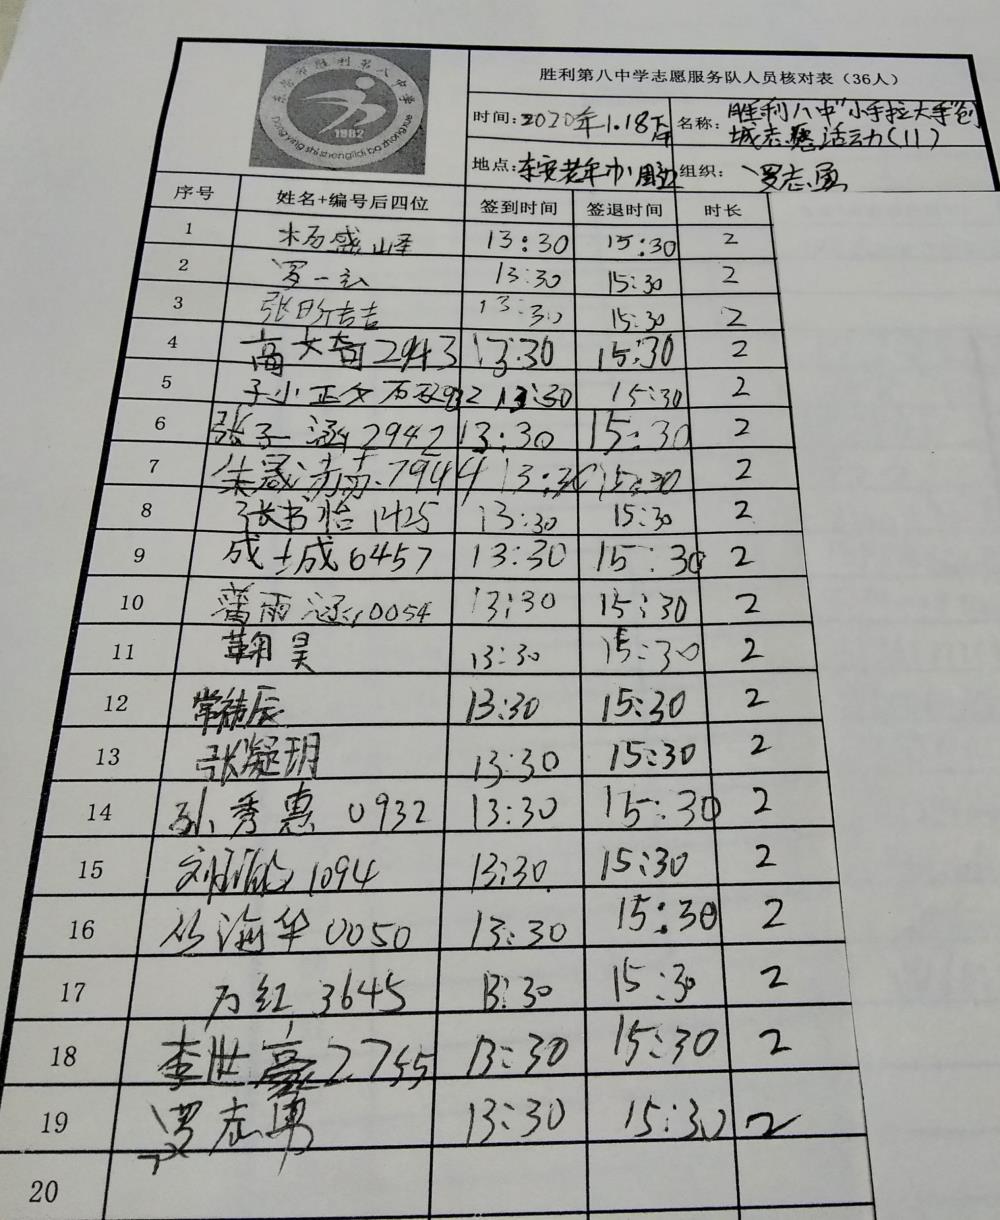 东营市胜利第八中学
1982
dong ying shi sheng li di ba zhong xue
胜利第八中学志愿服务队人员核对表（36人）
时间:2020年1.18下午 名称: 胜利八中"小手拉大手"创
城志愿活动(11)
地点: 东安老年 周边 组织: 罗志勇
序号 姓名+编号后四位 签到时间 签退时间 时长
1 杨盛峰 13:30 15:30 2
2 罗一 13:30 15:30 2
3 张昕吉吉 13:30 15:30 2
4 高文奇2943 13:30 15:30 2
5 13:30 15:30 2
6 张子涵2942 13:30 15:30 2
7 朱晟 7944 13:30 15:30 2
8 张书怡 1425 13:30 15:30 2
9 成士成6457 13:30 15:30 2
10 雨涵 0054 13:30 15:30 2
11 鞠昊 13:30 15:30 2
12 常祎辰 13:30 15:30 2
13 张凝玥 13:30 15:30 2
14 孙秀惠 0932 13:30 15:30 2
15 刘 1094 13:30 15:30 2
16 丛海华 0050 13:30 15:30 2
17 万红 3645 13:30 15:30 2
18 李世豪2755 13:30 15:30 2
19 罗志勇 13:30 15:30 2
20